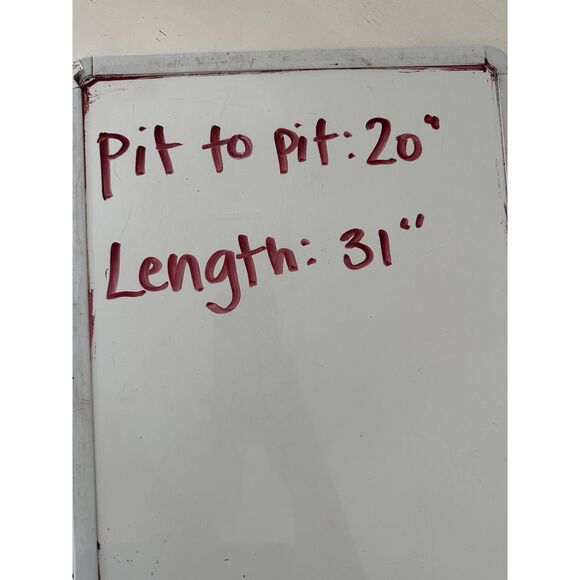 Pit to pit: 20"
Length: 31"